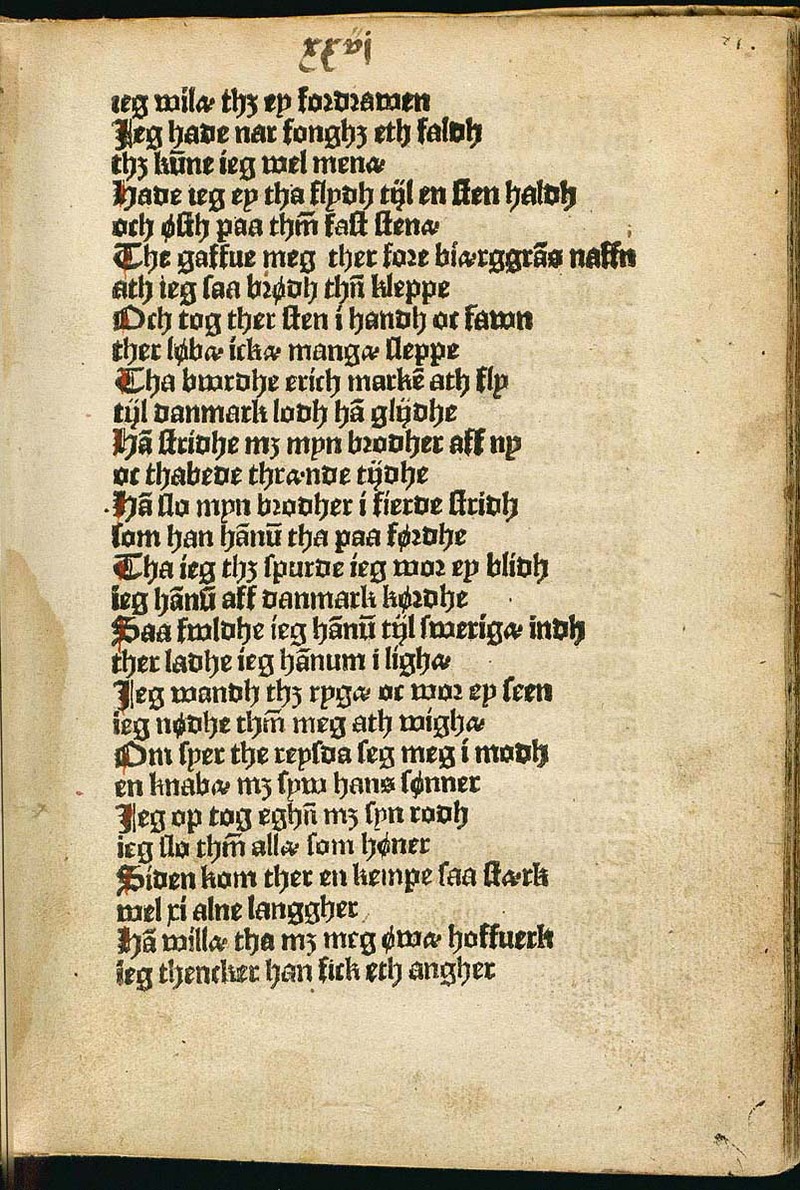 xxvi
71.
ieg wilæ thꝫ ey fordrawen
Jeg hade nar fonghꝫ eth faldh
thꝫ kūne ieg wel menæ
Hade ieg ey tha flydh tijl en sten haldh
och østh paa thm̄ fast stenæ
The gaffue meg ther fore biærggrās naffn
ath ieg saa brødh thn̄ kleppe
Och tog ther sten i handh oc fawn
ther løbæ ickæ mangæ sleppe
Tha bwrdhe erich markē ath fly
tijl danmark lodh hā glijdhe
Hā stridhe mꝫ myn brodher aff ny
oc thabede thrænde tijdhe
Hā slo myn brodher i fierde stridh
som han hānū tha paaførdhe
Tha ieg thꝫ spurde ieg wor ey blidh
ieg hānū aff danmark kørdhe
Saa fwldhe ieg hānū tijl swerigæ indh
ther ladhe ieg hānum i lighæ
Jeg wandh thꝫ rygæ oc wor ey seen
ieg nødhe thm̄ meg ath wighæ
Om syer the reysda seg meg i modh
en knabæ mꝫ syw hans sønner
Jeg op tog eghn̄ mꝫ syn rodh
ieg slo thm̄ allæ som høner
Siden kom ther en kempe saa stærk
wel xi alne langgher
Hā willæ tha mꝫ meg øwæ hoffuerk
ieg thencker han fick eth angher